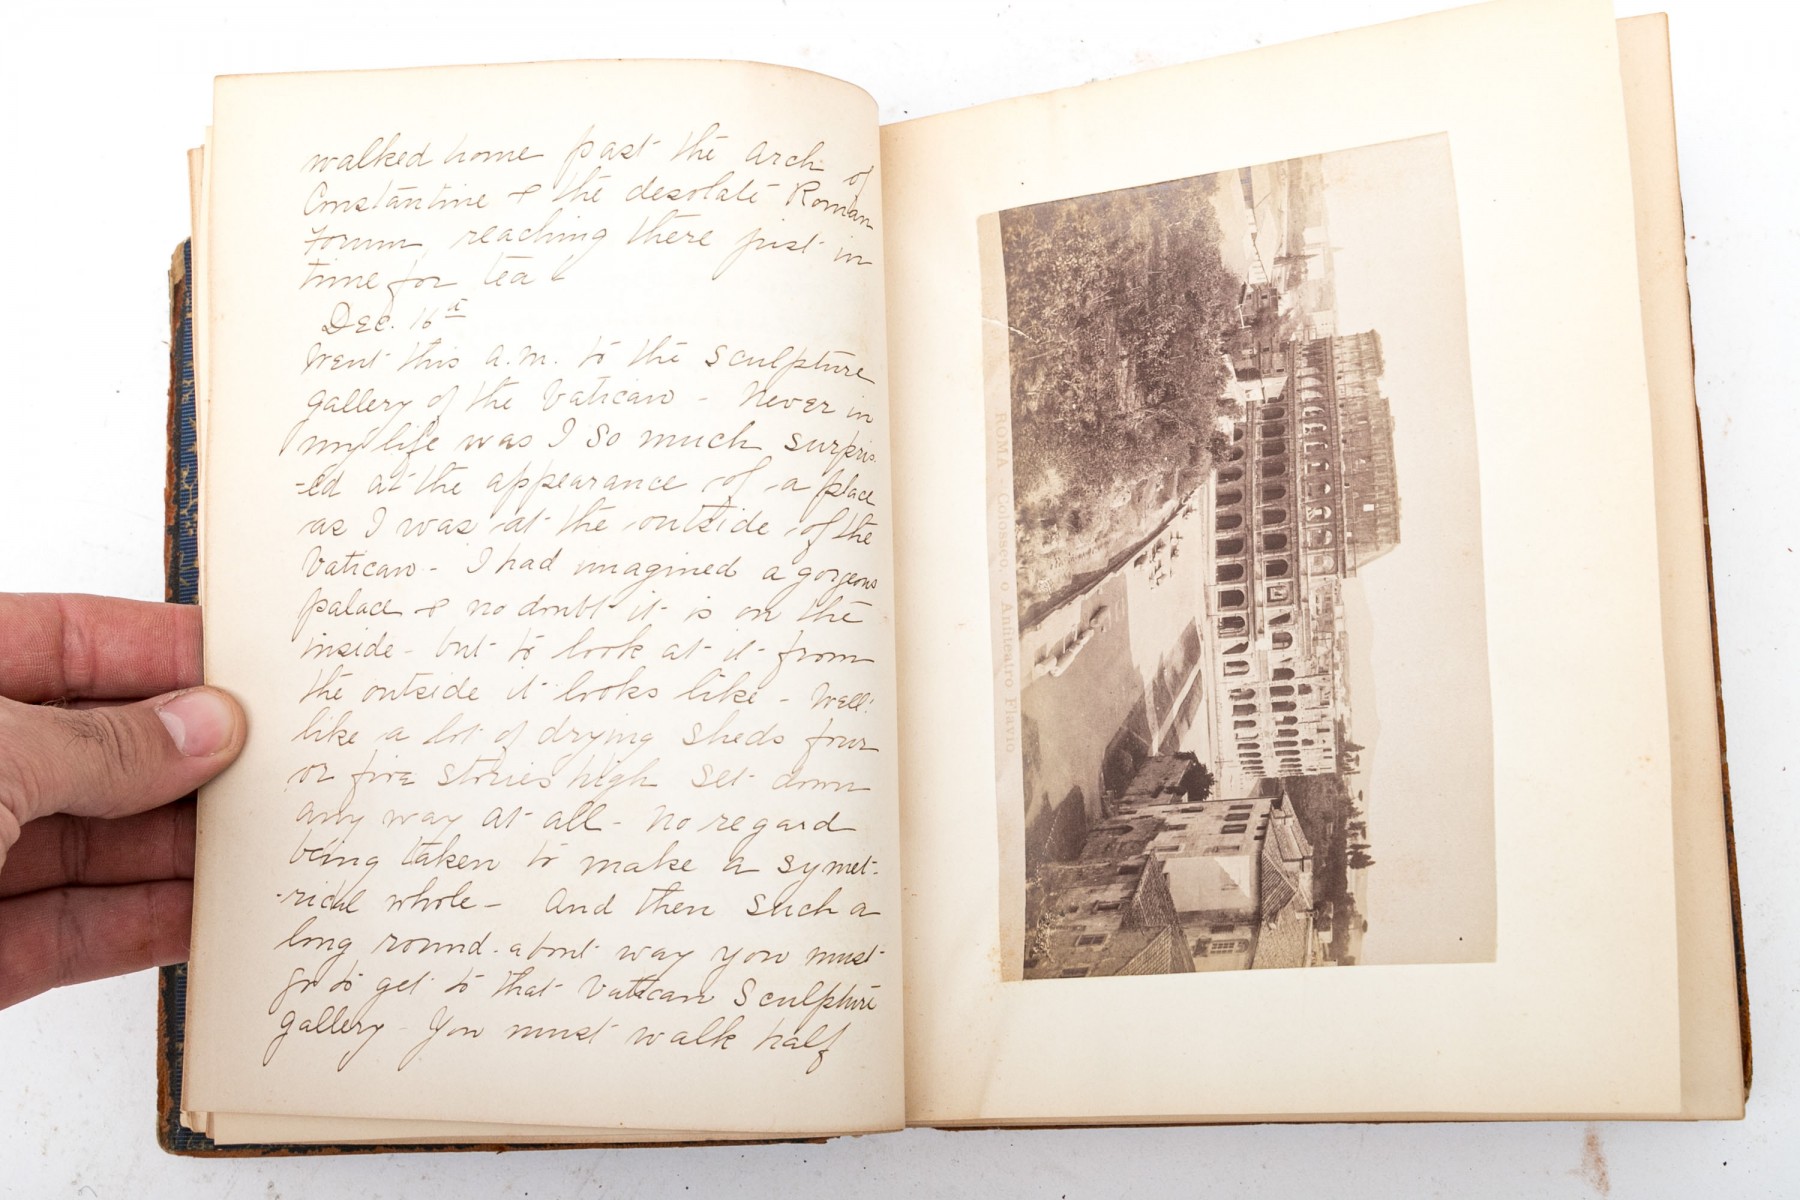 walked home past the arch of
Constantine & the desolate Roman
Forum, reaching there just in
time for tea
Dec. 16th
Went this a.m. to the Sculpture
gallery of the Vatican - Never in
my life was I so much surpris-
-ed at the appearance of a place
as I was at the outside of the
Vatican - I had imagined a gorgeous
palace & no doubt it is on the
inside - but to look at it from
the outside it looks like - Well!
like a lot of drying sheds four
or five stories high set down
any way at all - no regard
being taken to make a symet-
-rical whole - And then such a
long round-about way you must
go to get to that Vatican Sculpture
gallery - You must walk half
ROMA - Colosseo, o Anfiteatro Flavio